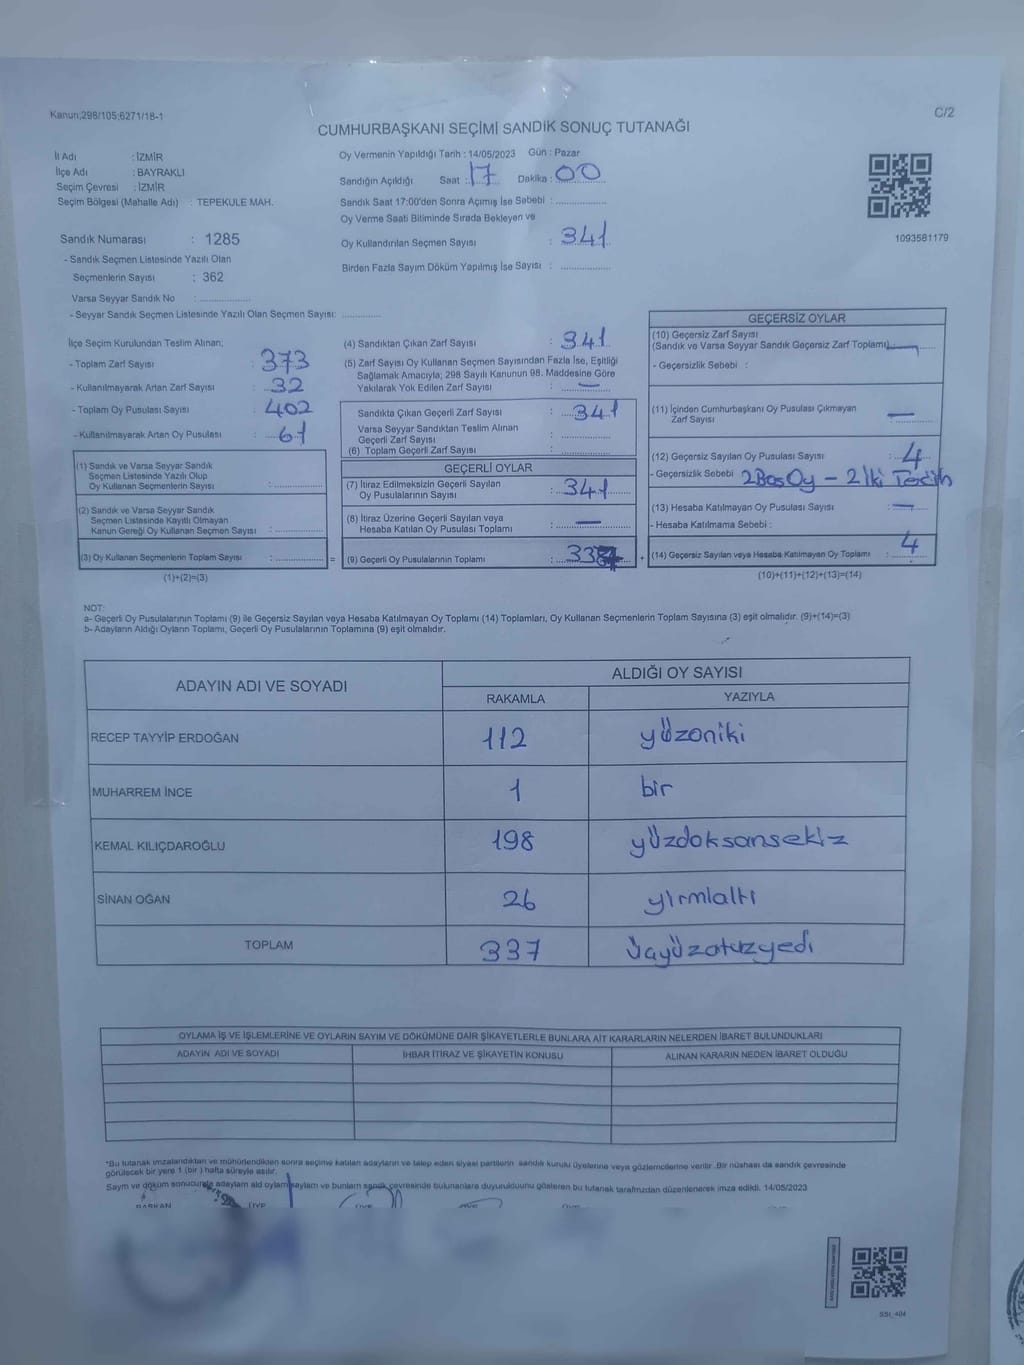 Kanun;298/105;6271/18-1
C/2
CUMHURBAŞKANI SEÇİMİ SANDIK SONUÇ TUTANAĞI
İl Adı : İZMİR
İlçe Adı : BAYRAKLI
Seçim Çevresi : İZMİR
Seçim Bölgesi (Mahalle Adı) : TEPEKULE MAH.
Sandık Numarası : 1285
- Sandık Seçmen Listesinde Yazılı Olan
Seçmenlerin Sayısı : 362
Varsa Seyyar Sandık No :
- Seyyar Sandık Seçmen Listesinde Yazılı Olan Seçmen Sayısı:
Oy Vermenin Yapıldığı Tarih : 14/05/2023 Gün : Pazar
Sandığın Açıldığı Saat : 17 Dakika : 00
Sandık Saat 17:00'den Sonra Açımış İse Sebebi :
Oy Verme Saati Bitiminde Sırada Bekleyen ve
Oy Kullandırılan Seçmen Sayısı : 341
Birden Fazla Sayım Döküm Yapılmış İse Sayısı :
1093581179
İlçe Seçim Kurulundan Teslim Alınan;
- Toplam Zarf Sayısı : 373
- Kullanılmayarak Artan Zarf Sayısı : 32
- Toplam Oy Pusulası Sayısı : 402
- Kullanılmayarak Artan Oy Pusulası : 61
(1) Sandık ve Varsa Seyyar Sandık
Seçmen Listesinde Yazılı Olup
Oy Kullanan Seçmenlerin Sayısı :
(2) Sandık ve Varsa Seyyar Sandık
Seçmen Listesinde Kayıtlı Olmayan
Kanun Gereği Oy Kullanan Seçmen Sayısı :
(3) Oy Kullanan Seçmenlerin Toplam Sayısı : =
(1)+(2)=(3)
(4) Sandıktan Çıkan Zarf Sayısı : 341
(5) Zarf Sayısı Oy Kullanan Seçmen Sayısından Fazla İse, Eşitliği
Sağlamak Amacıyla; 298 Sayılı Kanunun 98. Maddesine Göre
Yakılarak Yok Edilen Zarf Sayısı : —
Sandıkta Çıkan Geçerli Zarf Sayısı : 341
Varsa Seyyar Sandıktan Teslim Alınan
Geçerli Zarf Sayısı :
(6) Toplam Geçerli Zarf Sayısı :
GEÇERLİ OYLAR
(7) İtiraz Edilmeksizin Geçerli Sayılan
Oy Pusulalarının Sayısı : 341
(8) İtiraz Üzerine Geçerli Sayılan veya
Hesaba Katılan Oy Pusulası Toplamı : —
(9) Geçerli Oy Pusulalarının Toplamı : +
GEÇERSİZ OYLAR
(10) Geçersiz Zarf Sayısı
(Sandık ve Varsa Seyyar Sandık Geçersiz Zarf Toplamı) —
- Geçersizlik Sebebi :
(11) İçinden Cumhurbaşkanı Oy Pusulası Çıkmayan
Zarf Sayısı : —
(12) Geçersiz Sayılan Oy Pusulası Sayısı : 4
- Geçersizlik Sebebi 2 Boş Oy - 2 İki Tercih
(13) Hesaba Katılmayan Oy Pusulası Sayısı : —
- Hesaba Katılmama Sebebi :
(14) Geçersiz Sayılan veya Hesaba Katılmayan Oy Toplamı : 4
(10)+(11)+(12)+(13)=(14)
NOT:
a- Geçerli Oy Pusulalarının Toplamı (9) ile Geçersiz Sayılan veya Hesaba Katılmayan Oy Toplamı (14) Toplamları, Oy Kullanan Seçmenlerin Toplam Sayısına (3) eşit olmalıdır. (9)+(14)=(3)
b- Adayların Aldığı Oyların Toplamı, Geçerli Oy Pusulalarının Toplamına (9) eşit olmalıdır.
ADAYIN ADI VE SOYADI
ALDIĞI OY SAYISI
RAKAMLA YAZIYLA
RECEP TAYYİP ERDOĞAN 112 yüzoniki
MUHARREM İNCE 1 bir
KEMAL KILIÇDAROĞLU 198 yüzdoksansekiz
SİNAN OĞAN 26 yirmialtı
TOPLAM 337 üçyüzotuzyedi
OYLAMA İŞ VE İŞLEMLERİNE VE OYLARIN SAYIM VE DÖKÜMÜNE DAİR ŞİKAYETLERLE BUNLARA AİT KARARLARIN NELERDEN İBARET BULUNDUKLARI
ADAYIN ADI VE SOYADI İHBAR İTİRAZ VE ŞİKAYETİN KONUSU ALINAN KARARIN NEDEN İBARET OLDUĞU
*Bu tutanak imzalandıktan ve mühürlendikten sonra seçime katılan adayların ve talep eden siyasi partilerin sandık kurulu üyelerine veya gözlemcilerine verilir. Bir nüshası da sandık çevresinde
görülecek bir yere 1 (bir) hafta süreyle asılır.
Sayım ve döküm sonucunda adayların ald oyların sayları ve bunların sandık çevresinde bulunanlara duyurulduunu gösteren bu tutanak tarafımızdan düzenlenerek imza edildi. 14/05/2023
BAŞKAN ÜYE ÜYE ÜYE ÜYE
SSI_404